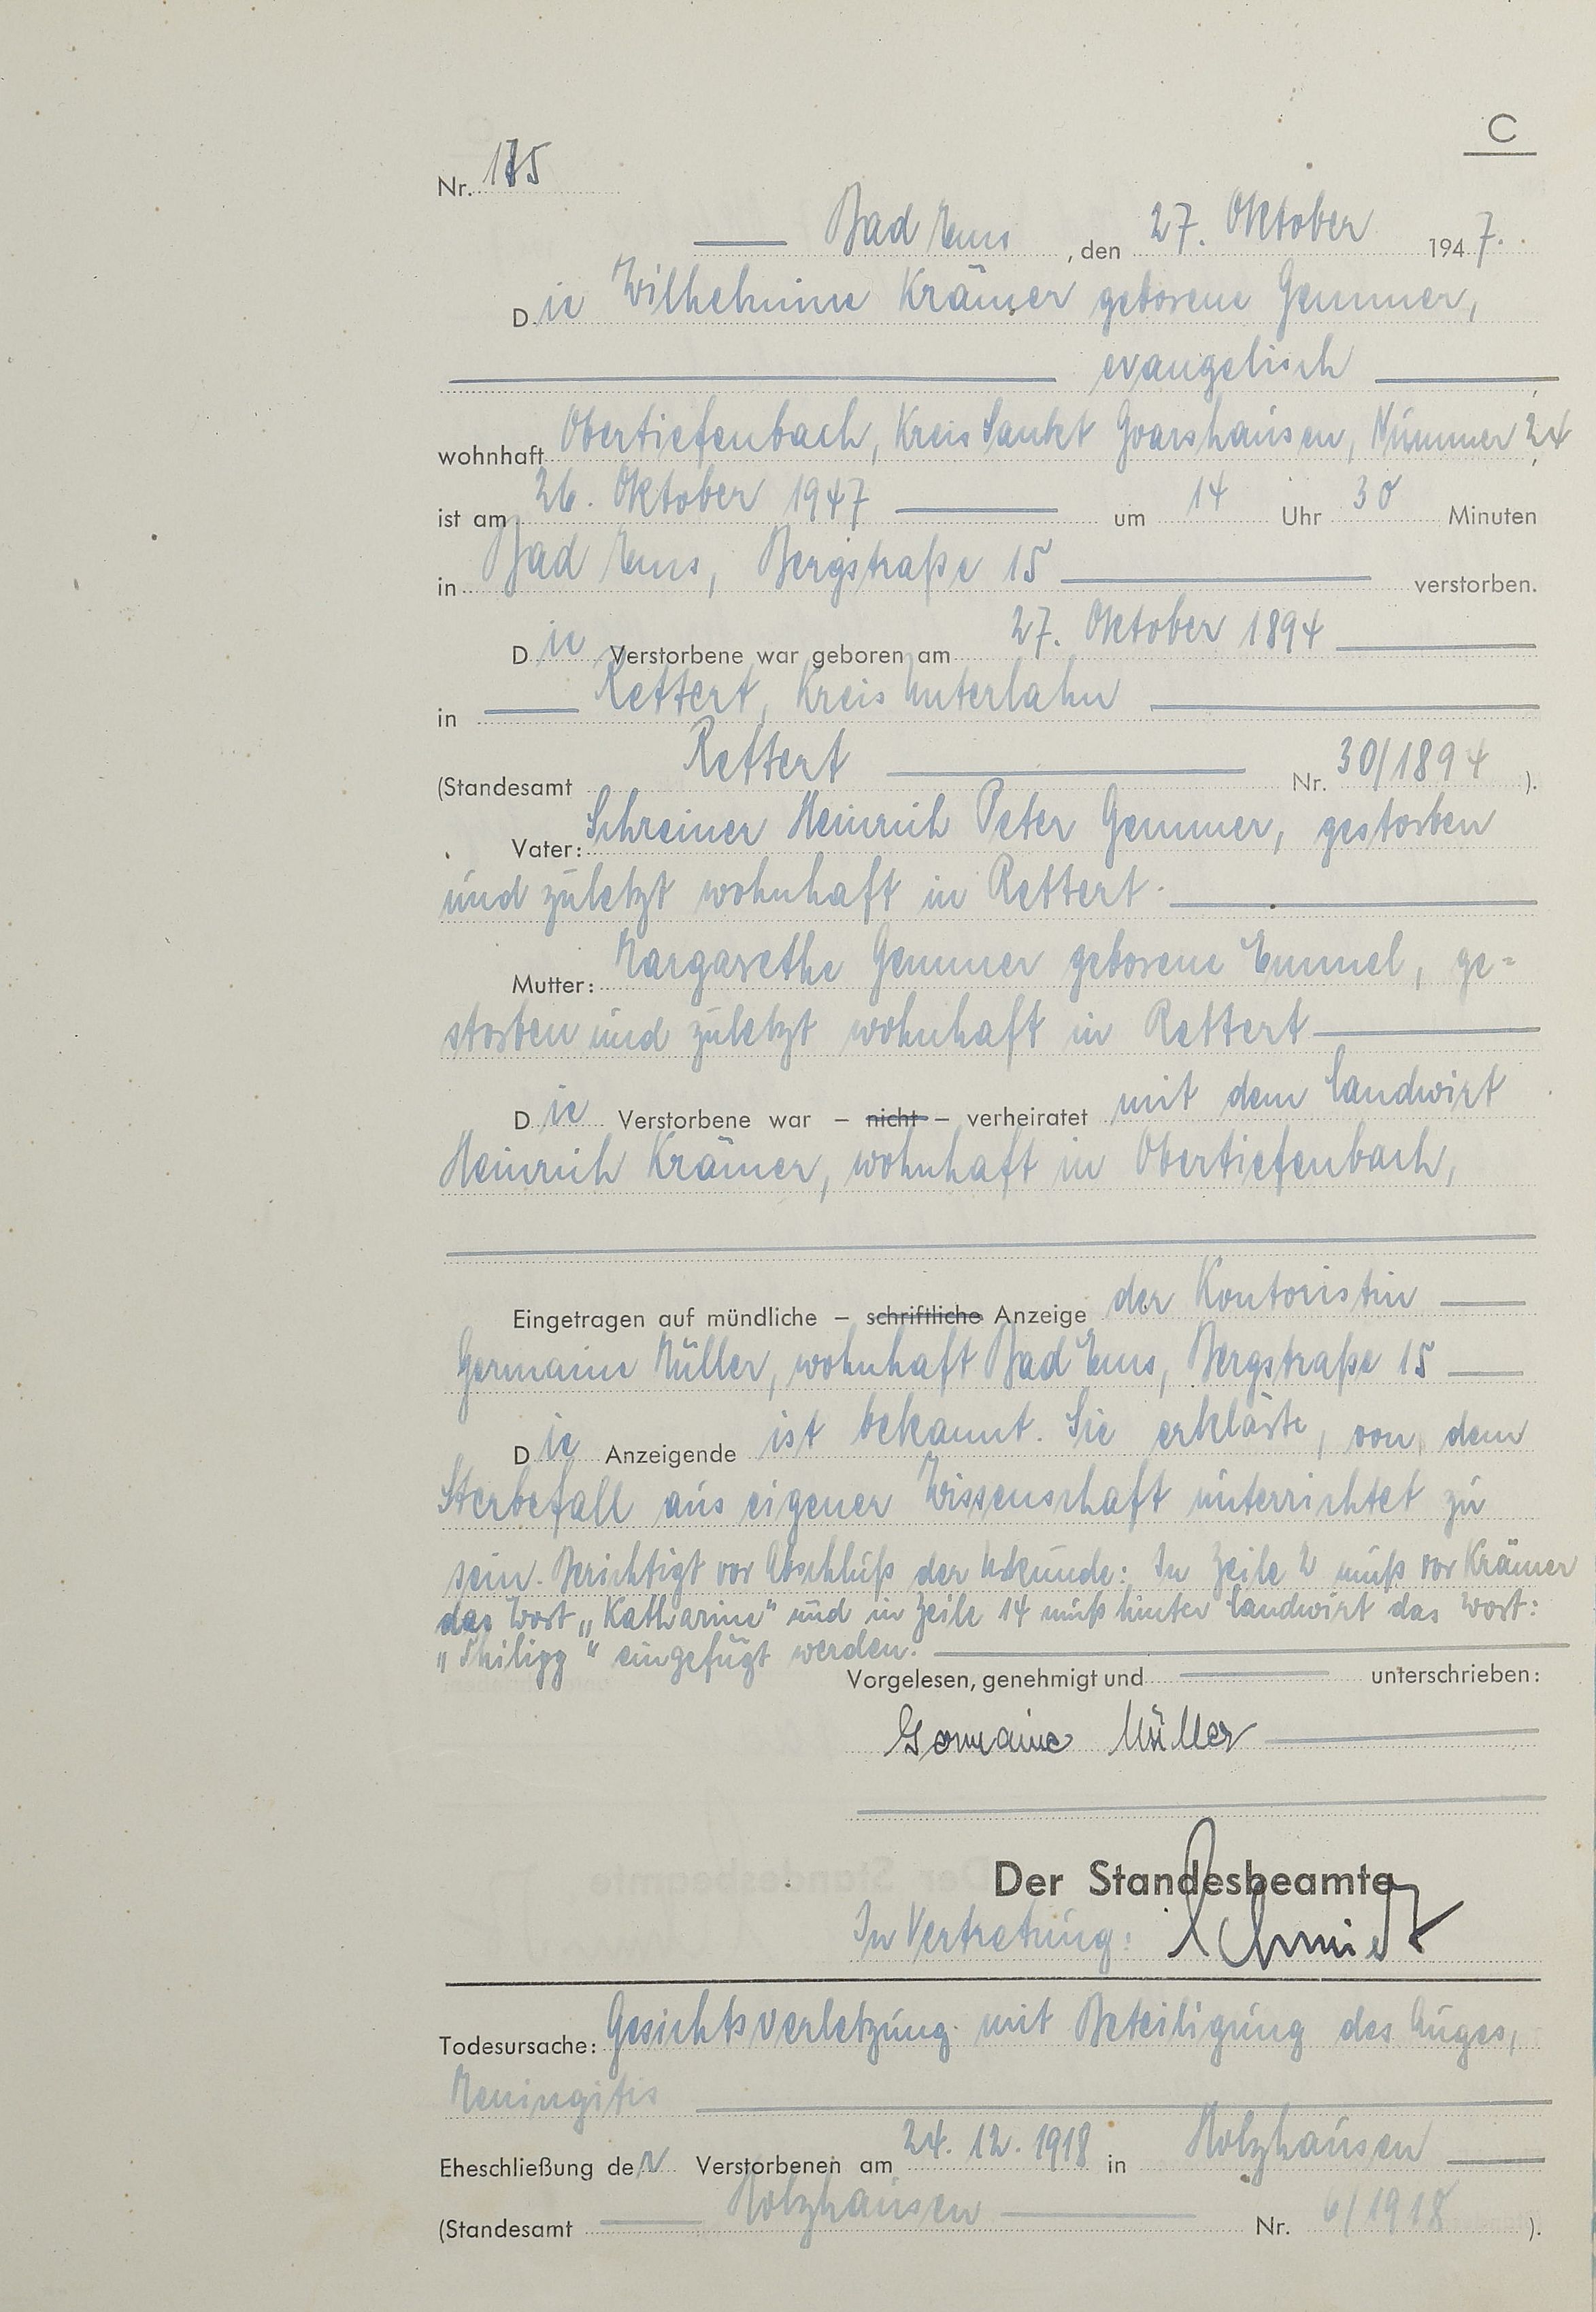 C
Nr. 175
Bad Ems, den 27. Oktober 1947.
Die Wilhelmine Krämer geborene Gemmer,
evangelisch
wohnhaft Obertiefenbach, Kreis Sankt Goarshausen, Nummer 24,
ist am 26. Oktober 1947 um 14 Uhr 30 Minuten
in Bad Ems, Bergstraße 15 verstorben.
Die Verstorbene war geboren am 27. Oktober 1894
in Rettert, Kreis Unterlahn
(Standesamt Rettert Nr. 30/1894 ).
Vater: Schreiner Heinrich Peter Gemmer, gestorben
und zuletzt wohnhaft in Rettert.
Mutter: Margarethe Gemmer geborene Emmel, ge-
storben und zuletzt wohnhaft in Rettert
Die Verstorbene war – nicht – verheiratet mit dem Landwirt
Heinrich Krämer, wohnhaft in Obertiefenbach,
Eingetragen auf mündliche – schriftliche Anzeige der Kontoristin
Germaine Müller, wohnhaft Bad Ems, Bergstraße 15
Die Anzeigende ist bekannt. Sie erklärte, von dem
Sterbefall aus eigener Wissenschaft unterrichtet zu
sein. Berichtigt vor Abschluß der Urkunde: In Zeile 2 muß vor Krämer
das Wort „Katharine" und in Zeile 14 muß hinter Landwirt das Wort:
„Philipp" eingefügt werden.
Vorgelesen, genehmigt und unterschrieben:
Germaine Müller
Der Standesbeamte
In Vertretung: Schmidt
Todesursache: Gesichtsverletzung mit Beteiligung des Auges,
Meningitis
Eheschließung der Verstorbenen am 24. 12. 1918 in Holzhausen
(Standesamt Holzhausen Nr. 6/1918 ).